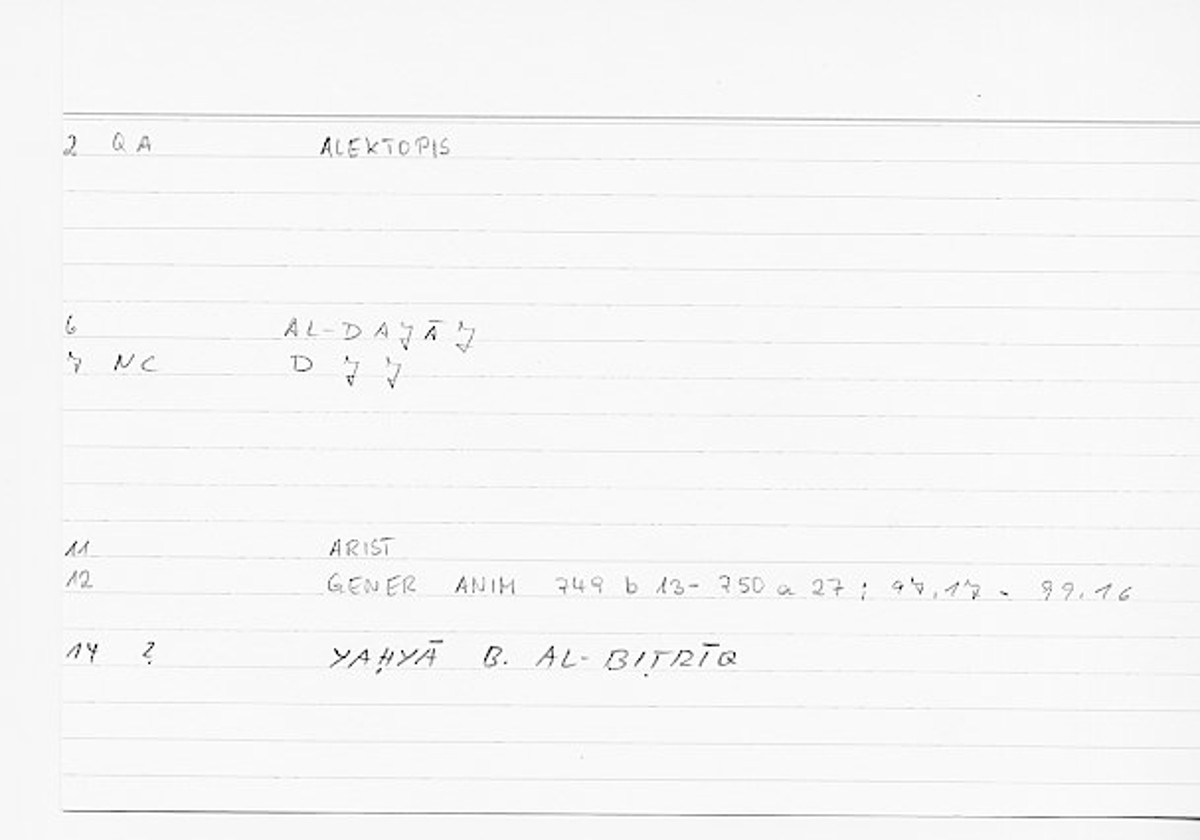 2 QA ALEKTOPIS
6 AL-DAJĀJ
7 NC D J J
11 ARIST
12 GENER ANIM 749 b 13-750 a 27; 97.17 - 99.16
14 ? YAḤYĀ B. AL-BIṬRĪQ